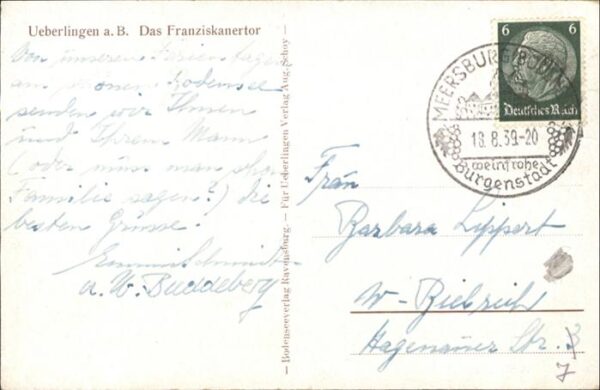 Ueberlingen a. B. Das Franziskanertor
Von unseren Ferientagen
am schönen Bodensee
senden wir Ihnen
und Ihrem Mann
(oder muss man schon
Familie sagen?) die
besten Grüsse.
u. W. Buddeberg
Bodenseeverlag Ravensburg. — Für Ueberlingen Verlag Aug. Schoy
6 6
Deutsches Reich
MEERSBURG (BODENSEE)
18.8.39.-20
weinfrohe
Burgenstadt
Frau
Barbara Lippert
W-Biebrich
Hagenauer Str. 3
7